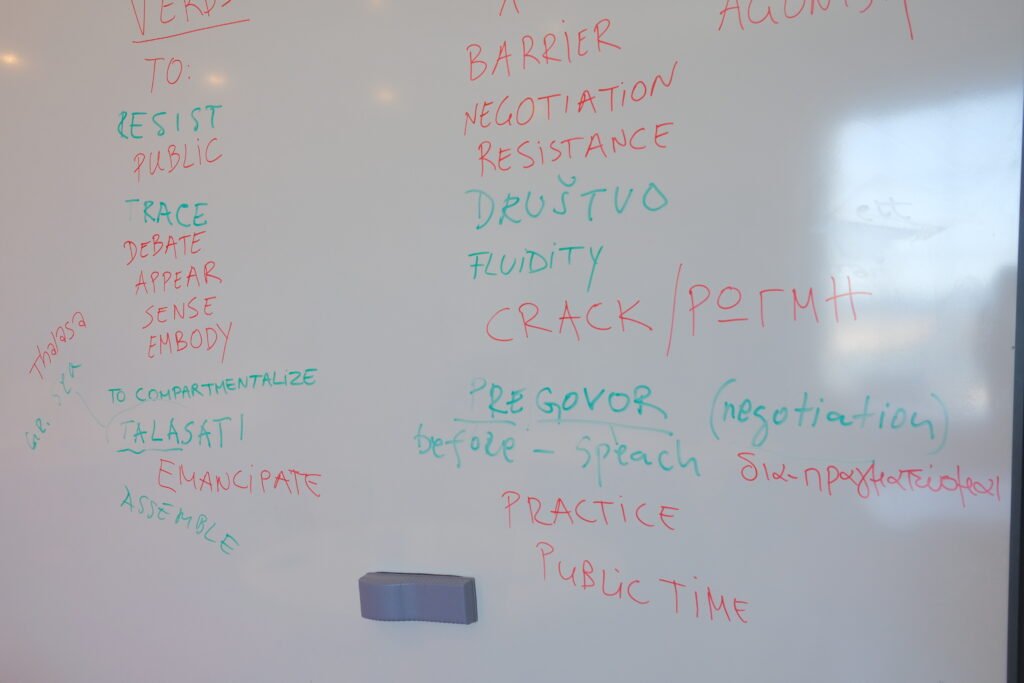 VERBS
TO:
RESIST
PUBLIC
TRACE
DEBATE
APPEAR
SENSE
EMBODY
Thalasa
GR. sea
TO COMPARTMENTALIZE
TALASATI
EMANCIPATE
ASSEMBLE
BARRIER
NEGOTIATION
RESISTANCE
DRUŠTVO
FLUIDITY
CRACK/ΡΩΓΜΗ
PREGOVOR (negotiation)
before - speach δια-πραγματεύομαι
PRACTICE
PUBLIC TIME